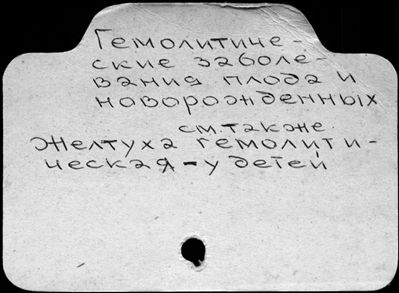 Гемолитиче-
ские заболе-
вания плода и
новорожденных
см. также
Желтуха гемолити-
ческая - у детей